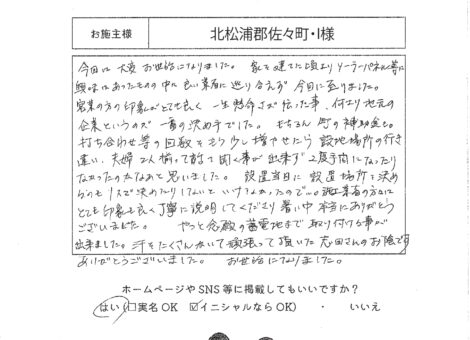 お施主様 北松浦郡佐々町・I様
今回は大変お世話になりました。家を建てた頃よりソーラーパネル等に
興味はあったものの中々良い業者に巡り合えず今回に至りました。
営業の方の印象がとても良く一生懸命さが伝った事、何より地元の
企業というのが一番の決め手でした。もちろん町の補助金も。
打ち合わせ等の回数をもう少し増やせたら設地場所の行き
違い、夫婦2人揃って話を聞く事が出来ず2度手間になったり
なかったかなぁと思いました。設置当日に設置場所を決め
られ1人で決めたりしないといけなかったので…。業者の方なに
とても印象も良く丁寧に説明してくださり暑い中本当にありがとう
ございました。やっと念願の蓄電池まで取り付ける事が
出来ました。汗をたくさんかいて頑張って頂いた志田さんのお陰です
ありがとうございました。お世話になりました。
ホームページやSNS等に掲載してもいいですか?
はい(□実名OK ☑イニシャルならOK) ・ いいえ